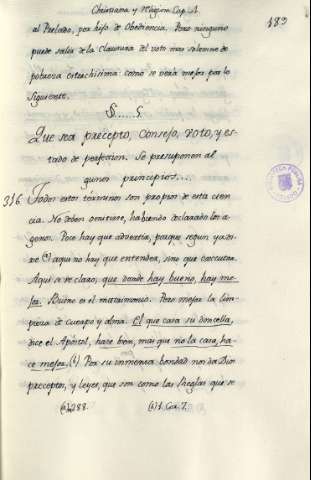 Christiana y Religion Cap. 1.
183
al Prelado, por hijo de Obediencia. Pero ninguno
puede salir de la Clausura del voto mas solemne de
pobreza estrechissima como se verà mejor por lo
siguiente.
§.....5.
Que sea precepto, consejo, voto, y es-
tado de perfeccion. Se presuponen al
gunos principios...
316 Todos estos terminos son propios de esta cien
cia. No deben omitirse, habiendo declarado los a-
genos. Poco hay que advertir, porque segun
(a) aqui no hay que entender, sino que executar.
Aqui se ve claro, que donde hay bueno, hay me-
jor. Bueno es el matrimonio. Pero mejor la lim-
pieza de cuerpo y alma. El que casa su doncella,
dice el Apostol, hace bien, mas que no la casa, ha-
ce mejor. (b) Por su inmensa bondad nos da Dios
preceptos, y leyes, que son como las Reglas que se
(a) 288. (b) 1. Cor. 7.